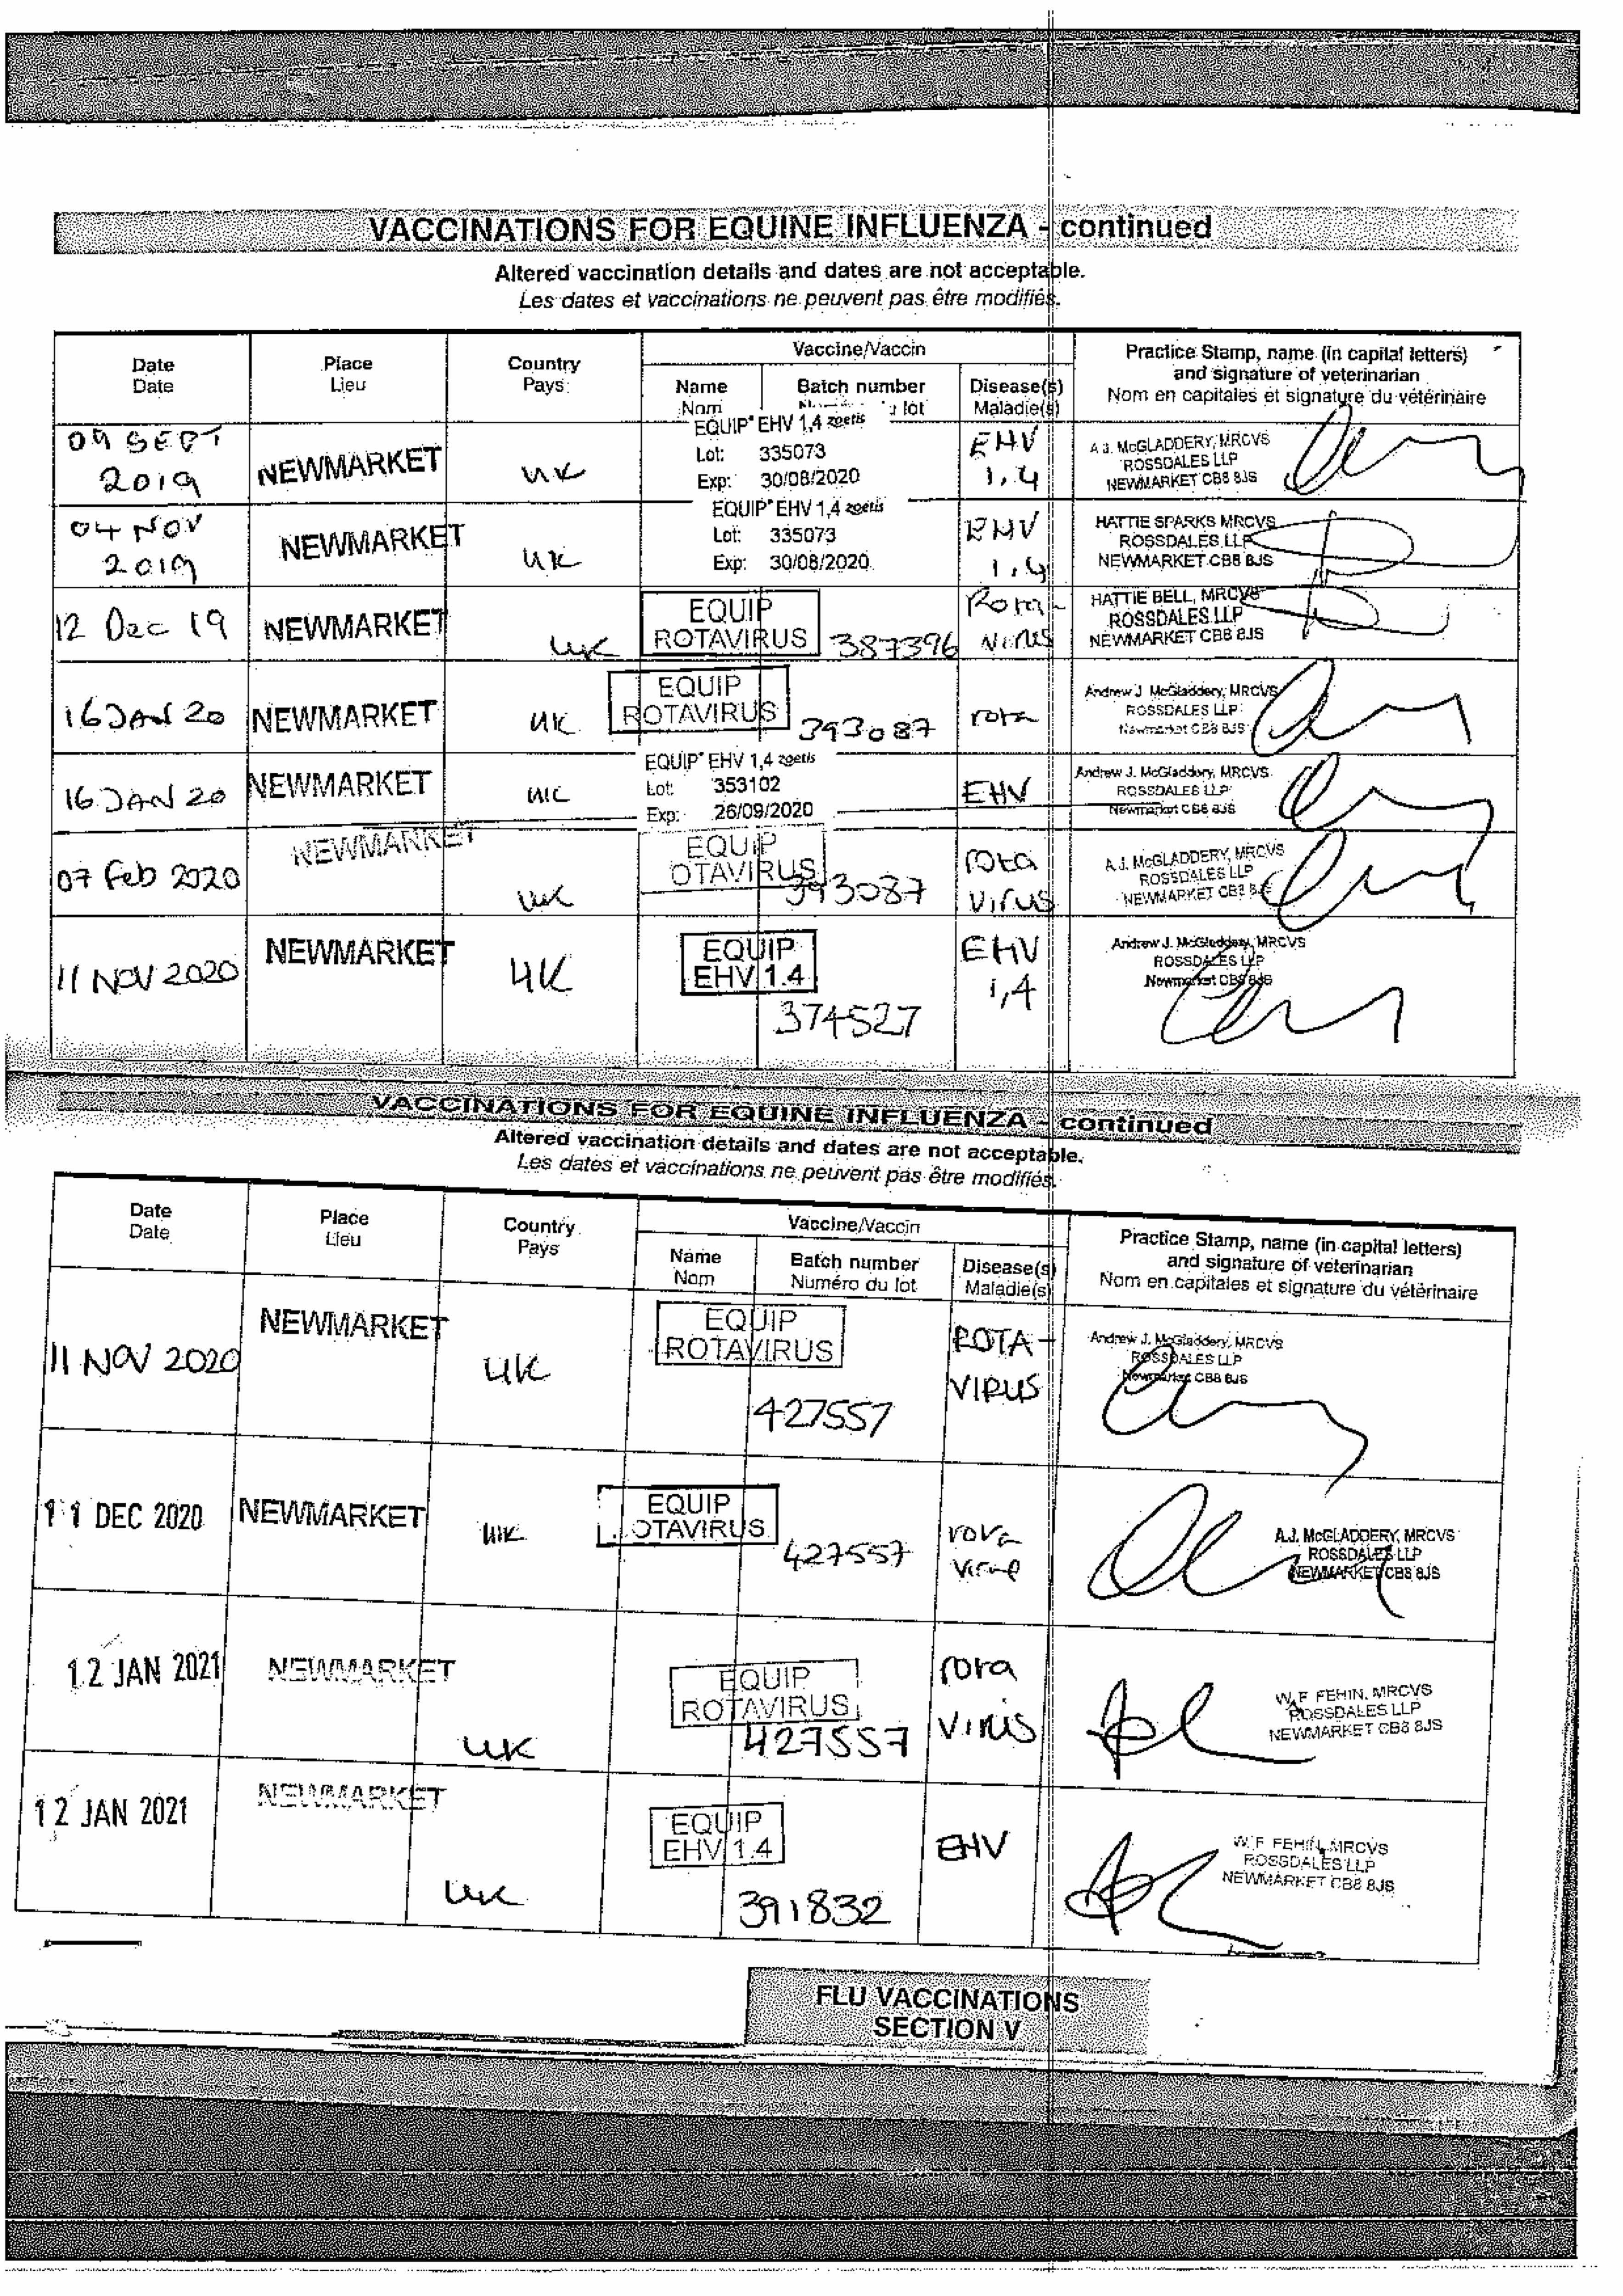 VACCINATIONS FOR EQUINE INFLUENZA - continued
Altered vaccination details and dates are not acceptable.
Les dates et vaccinations ne peuvent pas être modifiés.
Date
Date
Place
Lieu
Country
Pays
Vaccine/Vaccin
Name
Nom
Batch number
Disease(s)
Maladie(s)
Practice Stamp, name (in capital letters)
and signature of veterinarian
Nom en capitales et signature du vétérinaire
09 SEPT
2019
NEWMARKET
UK
EQUIP EHV 1,4 zoetis
Lot: 335073
Exp: 30/08/2020
EHV
1,4
A.J. McGLADDERY, MRCVS
ROSSDALES LLP
NEWMARKET CB8 8JS
04 NOV
2019
NEWMARKET
UK
EQUIP EHV 1,4 zoetis
Lot: 335073
Exp: 30/08/2020
EHV
1,4
HATTIE SPARKS MRCVS
ROSSDALES LLP
NEWMARKET CB8 8JS
12 Dec 19
NEWMARKET
UK
EQUIP
ROTAVIRUS
387396
Rota-
virus
HATTIE BELL, MRCVS
ROSSDALES LLP
NEWMARKET CB8 8JS
16 JAN 20
NEWMARKET
UK
EQUIP
ROTAVIRUS
393087
rota
Andrew J. McGladdery, MRCVS
ROSSDALES LLP
Newmarket CB8 8JS
16 JAN 20
NEWMARKET
UK
EQUIP EHV 1,4 zoetis
Lot: 353102
Exp: 26/09/2020
EHV
Andrew J. McGladdery, MRCVS
ROSSDALES LLP
Newmarket CB8 8JS
07 Feb 2020
NEWMARKET
UK
EQUIP
OTAVIRUS
393087
rota
virus
A.J. McGLADDERY, MRCVS
ROSSDALES LLP
NEWMARKET CB8 8JS
11 NOV 2020
NEWMARKET
UK
EQUIP
EHV 1.4
374527
EHV
1,4
Andrew J. McGladdery, MRCVS
ROSSDALES LLP
Newmarket CB8 8JS
VACCINATIONS FOR EQUINE INFLUENZA - continued
Altered vaccination details and dates are not acceptable.
Les dates et vaccinations ne peuvent pas être modifiés.
Date
Date
Place
Lieu
Country
Pays
Vaccine/Vaccin
Name
Nom
Batch number
Numéro du lot
Disease(s)
Maladie(s)
Practice Stamp, name (in capital letters)
and signature of veterinarian
Nom en capitales et signature du vétérinaire
11 NOV 2020
NEWMARKET
UK
EQUIP
ROTAVIRUS
427557
ROTA-
VIRUS
Andrew J. McGladdery, MRCVS
ROSSDALES LLP
Newmarket CB8 8JS
11 DEC 2020
NEWMARKET
UK
EQUIP
OTAVIRUS
427557
rota
A.J. McGLADDERY, MRCVS
ROSSDALES LLP
NEWMARKET CB8 8JS
12 JAN 2021
NEWMARKET
UK
EQUIP
ROTAVIRUS
427557
rota
virus
W.F. FEHIN, MRCVS
ROSSDALES LLP
NEWMARKET CB8 8JS
12 JAN 2021
NEWMARKET
UK
EQUIP
EHV 1.4
391832
EHV
W.F. FEHIN, MRCVS
ROSSDALES LLP
NEWMARKET CB8 8JS
FLU VACCINATIONS
SECTION V